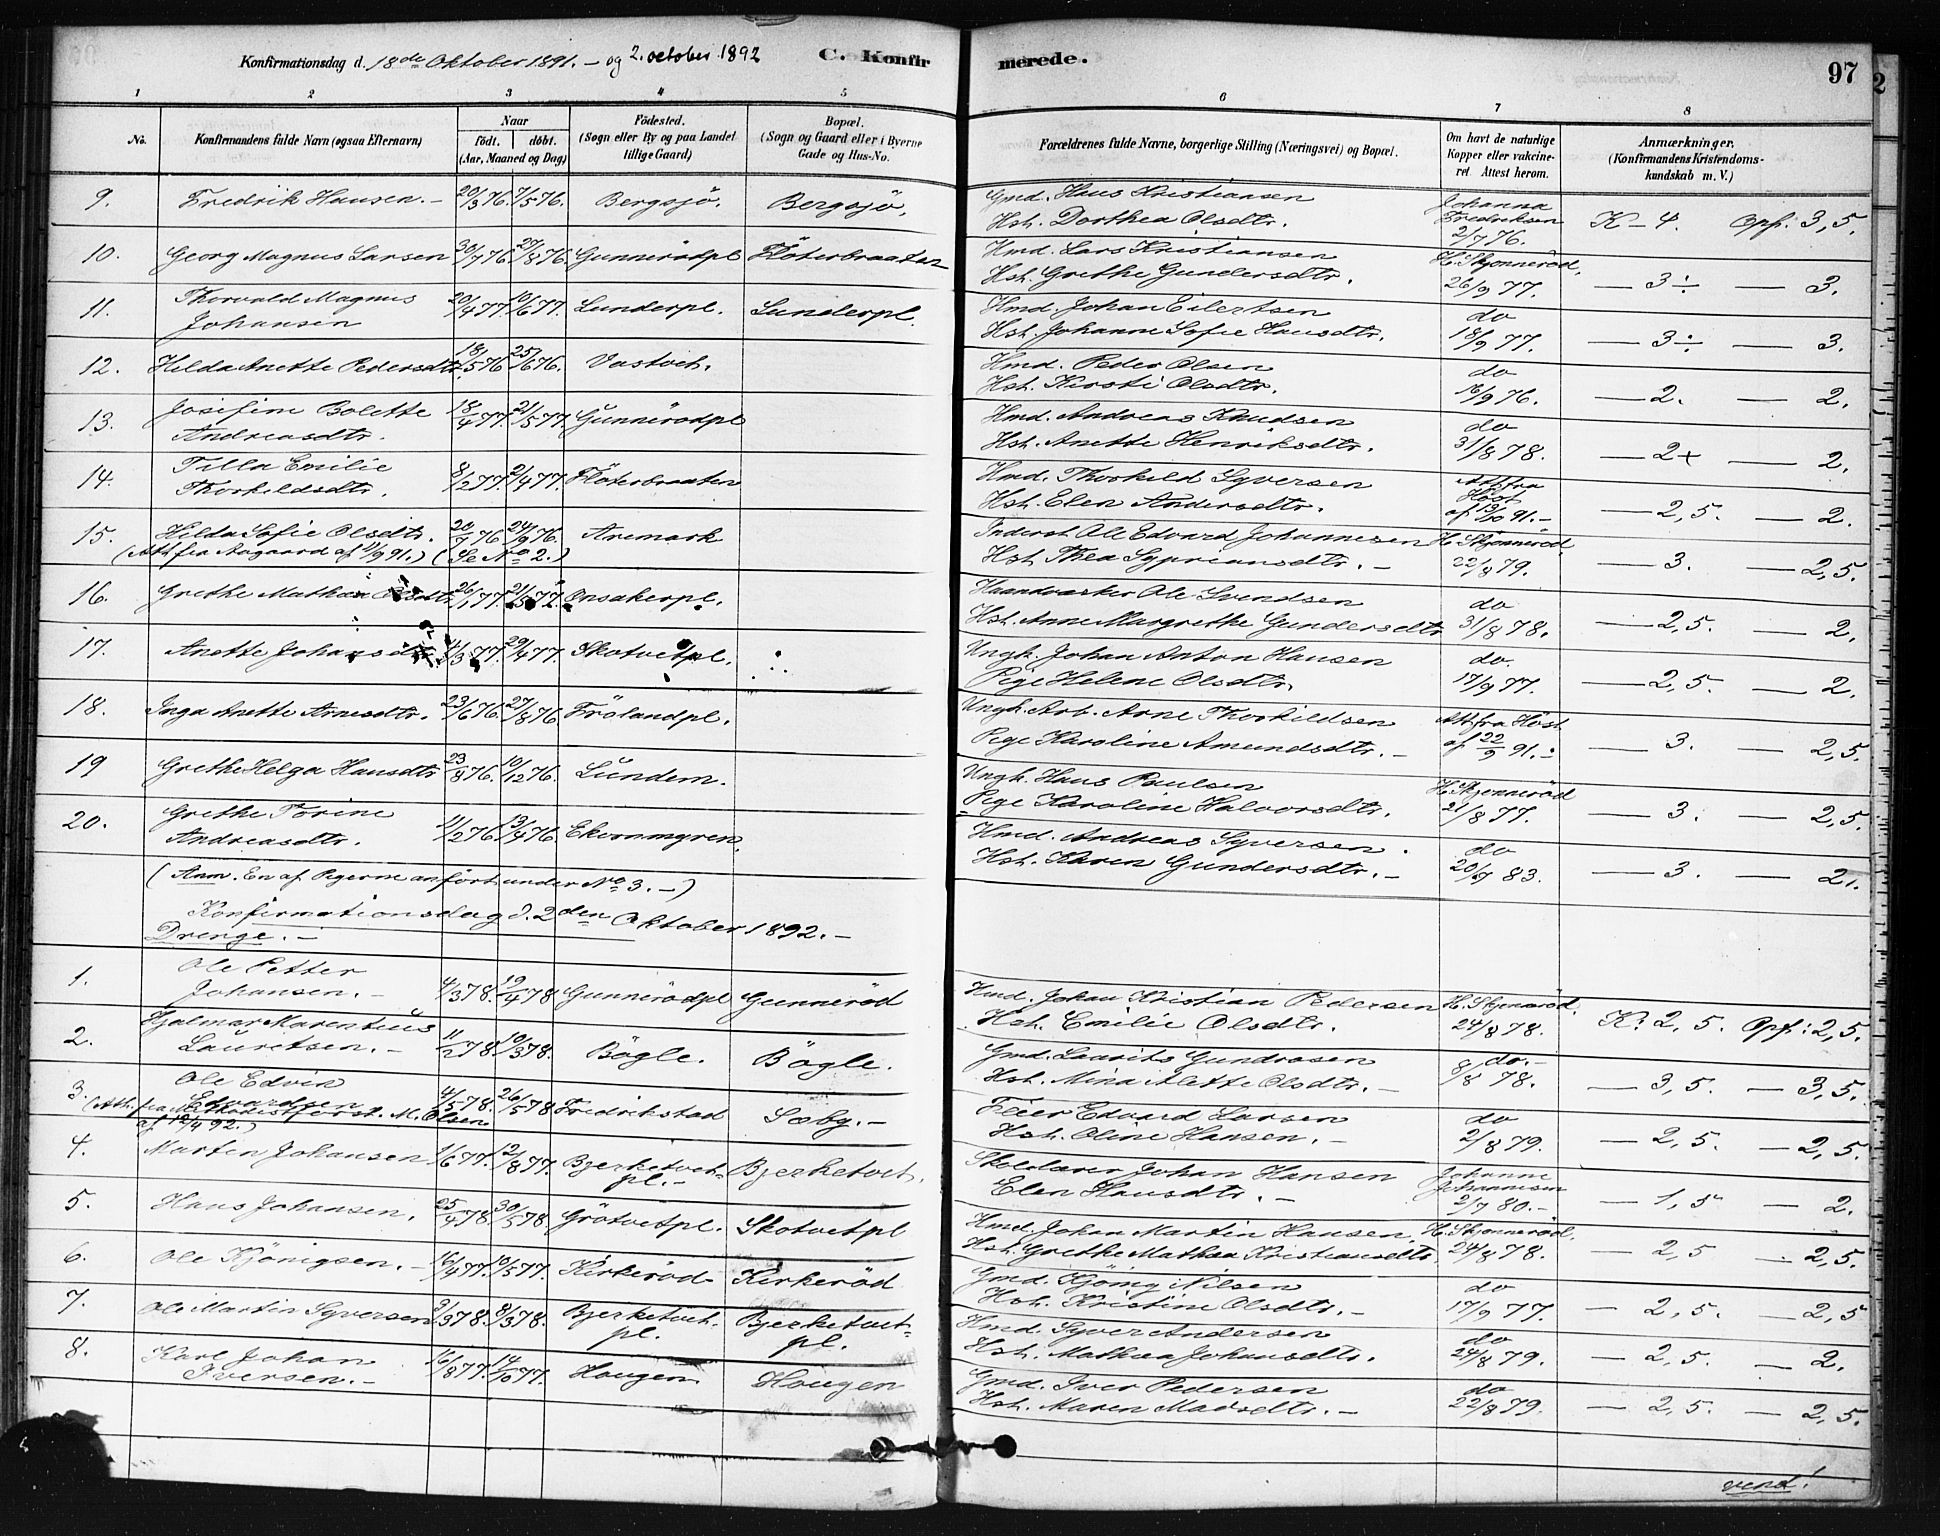 Konfirmationsdag d. 18de Oktober 1891. – og 2. october 1892 C. Konfirmerede. 97
1 2 3 4 5 6 7 8
No. Konfirmandens fulde Navn (ogsaa Efternavn) Naar födt. döbt. (Aar, Maaned og Dag) Födested. (Sogn eller By og paa Landet tillige Gaard) Bopæl. (Sogn og Gaard eller i Byerne Gade og Hus-No. Forældrenes fulde Navne, borgerlige Stilling (Næringsvei) og Bopæl. Om havt de naturlige Kopper eller vakcineret. Attest herom. Anmærkninger. (Konfirmandens Kristendomskundskab m. V.)
9. Fredrik Hansen. – 20/3 76. 7/5 76. Bergsjö. Bergsjö. Gmd. Hans Kristiansen Hst. Dorthea Olsdtr. Johanna Fredriksen 2/7 76. K – 4. Opf: 3,5.
10. Georg Magnus Larsen 30/7 76. 27/8 76. Gunnerödpl Flöterbraaten Hmd. Lars Kristiansen Hst. Grethe Gundersdtr. H. Skjönneröd, 26/9 77. — 3 ÷ — 3.
11. Thorvald Magnus Johansen 20/4 77. 10/6 77. Lunderpl. Lunderpl. Hmd. Johan Eilertsen Hst. Johanne Sofie Hansdtr. do 18/9 77. — 3 ÷ — 3.
12. Hilda Anette Pedersdtr. 18/5 76 25/6 76. Vastvet. Hmd. Peder Olsen Hst. Kirsti Olsdtr. do 16/9 76. — 2. — 2.
13. Josefine Bolette Andreasdtr. 18/4 77. 21/5 77. Gunnerödpl Hmd. Andreas Knudsen Hst. Anette Henriksdtr. do 31/8 78. — 2 + — 2.
14. Tilla Emilie Thorkildsdtr. 8/2 77. 2/4 77. Flöterbraaten Hmd. Thorkild Syversen Hst. Elen Andersdtr. Att. fra Höst af 13/10 91. – — 2,5. — 2.
15. Hilda Sofie Olsdtr. 20/7 76 24/9 76. Aremark Inderst. Ole Edvard Johannesen Hst. Thea Sypriansdtr. – H. Skjönneröd. 22/8 79. — 3. — 2,5.
(Att. fra Aagaard af 11/9 91.) (Se No 2.)
16. Grethe Mathea Olsdtr. 26/1 77. 21/5 77. Onsakerpl. Haandværker Ole Svendsen Hst. Anne Margrethe Gundersdtr do 31/8 78. — 2,5. — 2.
17. Anette Johansdtr. 4/3 77. 29/4 77. Skotvetpl. Ungk. Johan Anton Hansen Pige Helene Olsdtr. do. 17/9 77. — 2,5. — 2.
18. Inga Anette Arnesdtr. 23/6 76. 27/8 76 Frölandpl. Ungk. Arb. Arne Thorkildsen Pige Karoline Amundsdtr. – Att. fra Höst af 22/9 91. – — 3. — 2,5.
19 Grethe Helga Hansdtr 23/8 76. 10/12 76. Lundem. Ungk. Hans Paulsen Pige Karoline Halvorsdtr. H. Skjönneröd 21/8 77. — 3. — 2,5.
20. Grethe Torine Andreasdtr. 11/2 76. 13/4 76. Ekornmyren. Hmd. Andreas Syversen. Hst. Karen Gundersdtr. – do 20/9 83. — 3. — 2.
(Anm. En af Pigerne anfört under No 3. –)
Konfirmationsdag d. 2den Oktober 1892. –
Drenge. –
1. Ole Petter Johansen. – 4/3 78. 19/4 78 Gunnerödpl Gunneröd Hmd. Johan Kristian Pedersen Hst. Emilie Olsdtr. H. Skjöneröd. 24/8 78. K: 2,5. Opf: 2,5.
2. Hjalmar Marentius Lauretsen. – 11/2 78. 10/3 78. Bögle. Bögle. Gmd. Laurits Gundrosen Hst. Mina Alette Olsdtr. – do. – 8/8 78. — 3,5. — 3,5.
3. Ole Edvin Edvardsen 4/5 78. 26/5 78 Fredrikstad Sæby. – Feier Edvard Larsen Hst. Oline Hansen. – do 2/8 79. — 2,5. — 2,5.
(Att. fra Methodistforst. M. Olsen af 12/4 92.)
4. Martin Johansen 1/6 77. 12/8 77. Bjerketvet pl. – Bjerketvet. Skolelærer Johan Hansen Elen Hansdtr. – Johanne Johannesen 2/7 80. – — 1,5 — 2.
5. Hans Johansen. 25/4 78. 30/5 78. Grötvetpl. Skotvetpl Hmd. Johan Martin Hansen, Hst. Grethe Mathea Kristiansdtr. H. Skjönneröd, 24/8 78. — 2,5 — 2,5.
6. Ole Kjönigsen. – 16/4 77. 10/5 77. Kirkeröd Kirkeröd Gmd. Kjönig Nilsen Hst. Kristine Olsdtr. – do 17/9 77. — 2,5. — 2,5
7. Ole Martin Syversen 3/3 78. 8/3 78. Bjerketvet. pl. Bjerketvet- pl. Hmd. Syver Andersen Hst. Mathea Johansdtr. do 24/8 79. — 2,5. — 2.
8. Karl Johan Iversen. – 16/8 77. 14/10 77. Hougen Hougen Gmd. Iver Pedersen Hst. Maren Madsdtr. – do 22/8 79. — 2,5. — 2,5.
vend!